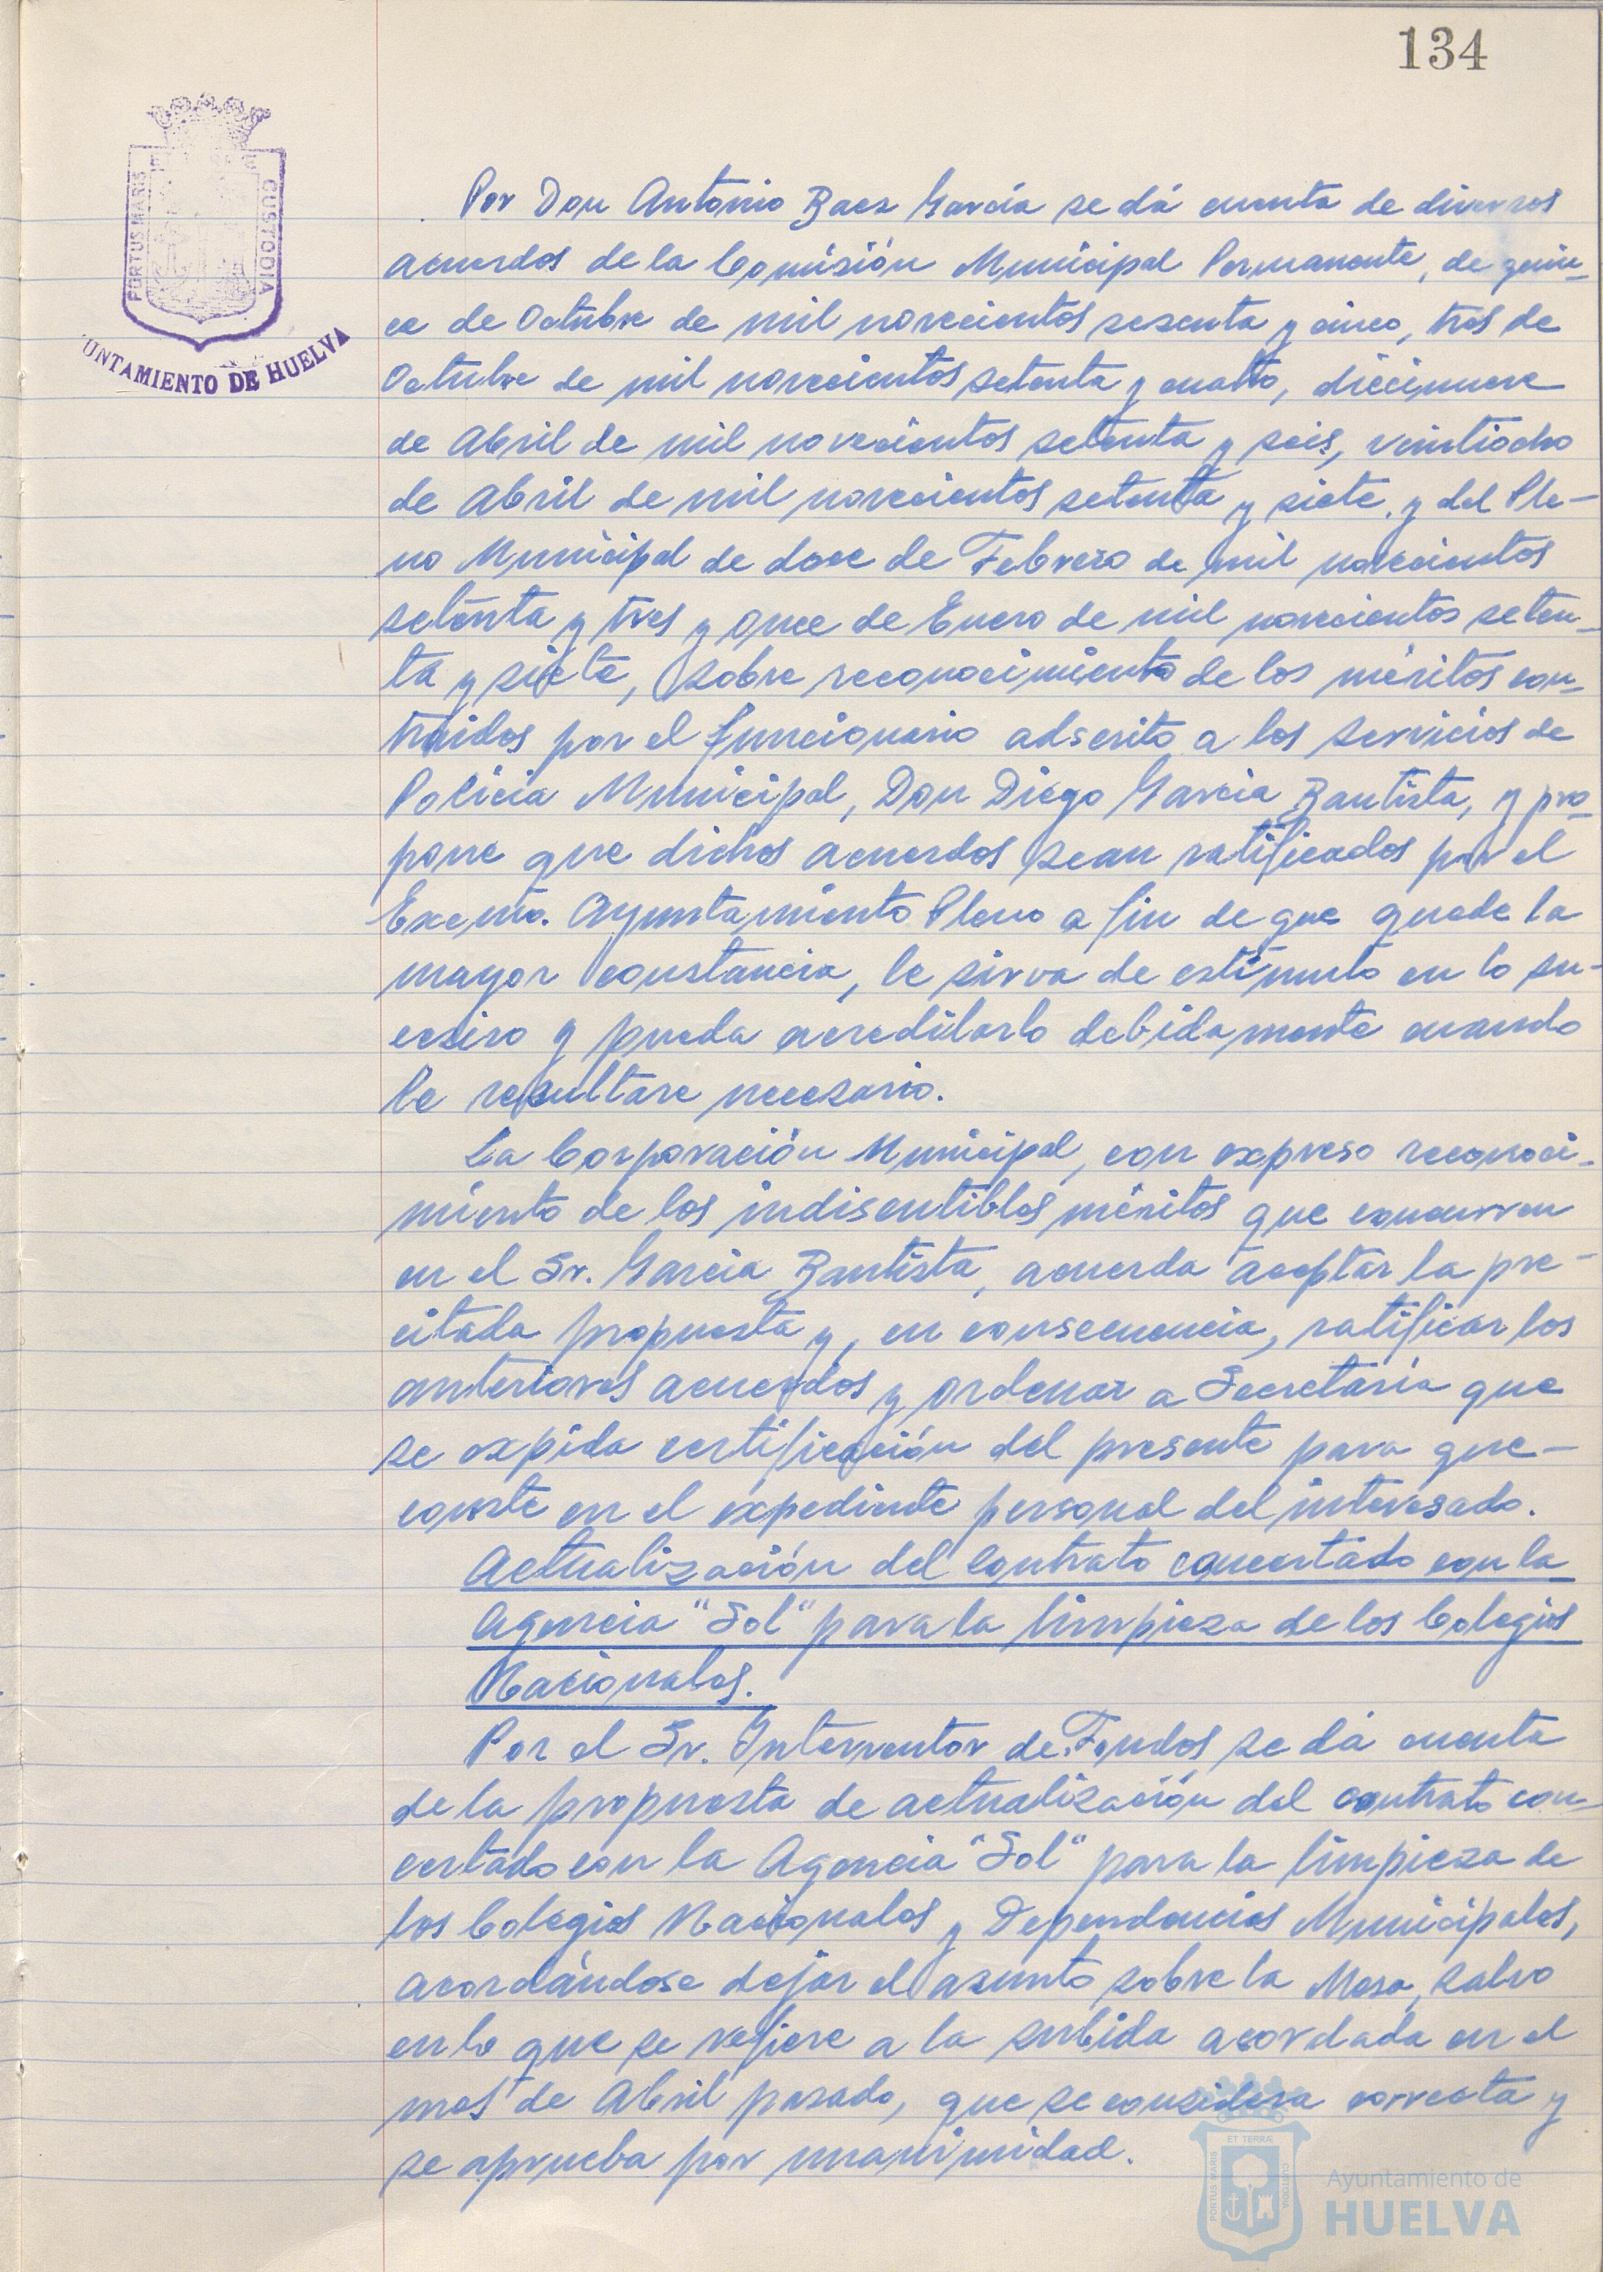 134
PORTUS MARIS ET TERRAE CUSTODIA
UNTAMIENTO DE HUELVA
Por Don Antonio Baez García se dá cuenta de diversos
acuerdos de la Comisión Municipal Permanente, de quin-
ce de Octubre de mil novecientos sesenta y cinco, tres de
Octubre de mil novecientos setenta y cuatro, diecinueve
de Abril de mil novecientos setenta y seis, veintiocho
de Abril de mil novecientos setenta y siete, y del Ple-
no Municipal de doce de Febrero de mil novecientos
setenta y tres y once de Enero de mil novecientos seten-
ta y siete, sobre reconocimiento de los méritos con-
traidos por el funcionario adscrito a los servicios de
Policia Municipal, Don Diego García Bautista, y pro-
pone que dichos acuerdos sean ratificados por el
Excmo. Ayuntamiento Pleno a fin de que quede la
mayor constancia, le sirva de estimulo en lo su-
cesivo y pueda acreditarlo debidamente cuando
le resultare necesario.
La Corporación Municipal, con expreso reconoci-
miento de los indiscutibles méritos que concurren
en el Sr. García Bautista, acuerda aceptar la pre-
citada propuesta y, en consecuencia, ratificar los
anteriores acuerdos y ordenar a Secretaría que
se expida certificación del presente para que-
conste en el expediente personal del interesado.
Actualización del contrato concertado con la
Agencia "Sol" para la limpieza de los Colegios
Nacionales.
Por el Sr. Interventor de Fondos se dá cuenta
de la propuesta de actualización del contrato con-
certado con la Agencia "Sol" para la limpieza de
los Colegios Nacionales y Dependencias Municipales,
acordándose dejar el asunto sobre la Mesa, salvo
en lo que se refiere a la subida acordada en el
mes de Abril pasado, que se considera correcta y
se aprueba por unanimidad.
PORTUS MARIS ET TERRÆ CUSTODIA
Ayuntamiento de
HUELVA